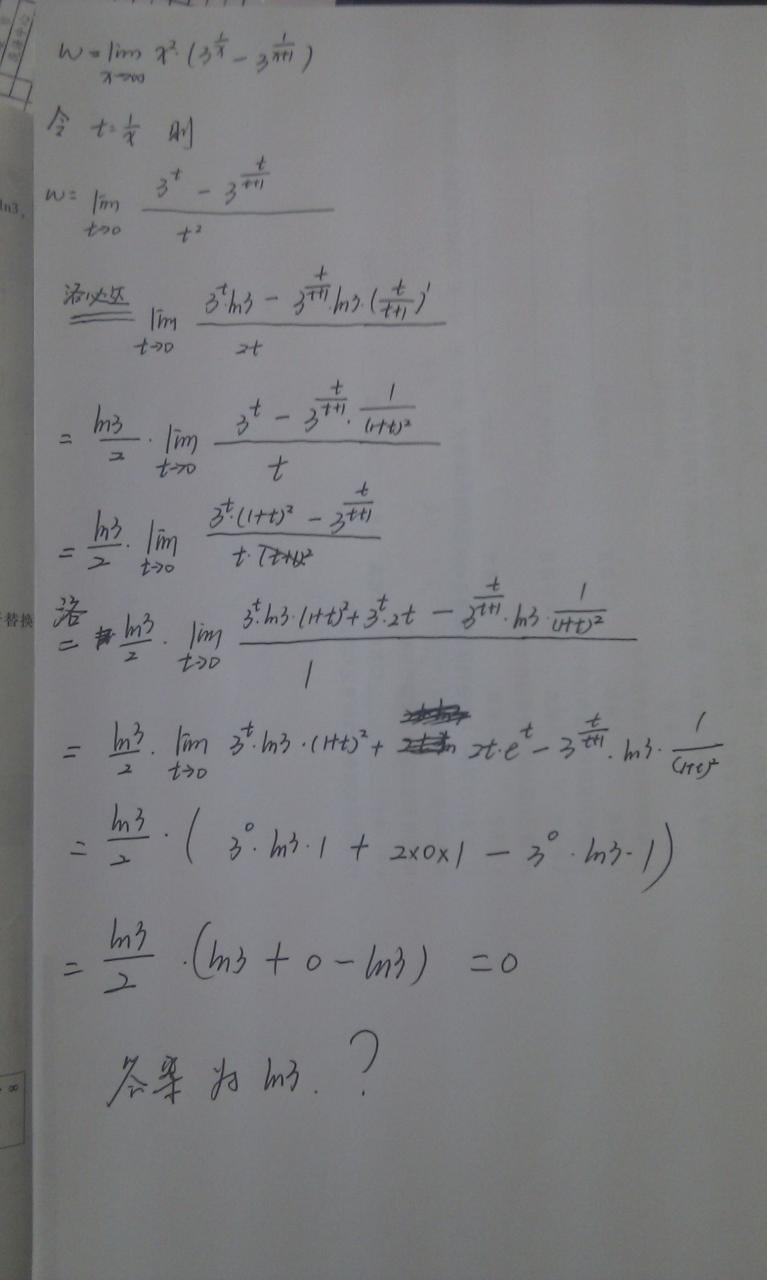 w = lim_{x→∞} x²·(3^{1/x} - 3^{1/(x+1)})
令 t=1/x 则
w= lim_{t→0} (3^t - 3^{t/(t+1)}) / t²
洛必达 lim_{t→0} (3^t·ln3 - 3^{t/(t+1)}·ln3·(t/(t+1))') / 2t
= ln3/2 · lim_{t→0} (3^t - 3^{t/(t+1)}·1/(1+t)²) / t
= ln3/2 · lim_{t→0} (3^t·(1+t)² - 3^{t/(t+1)}) / t·(t+1)²
洛
= ln3/2 · lim_{t→0} (3^t·ln3·(1+t)²+3^t·2t - 3^{t/(t+1)}·ln3·1/(1+t)²) / 1
= ln3/2 · lim_{t→0} 3^t·ln3·(1+t)² + 2t·e^t - 3^{t/(t+1)}·ln3·1/(1+t)²
= ln3/2 · ( 3^0·ln3·1 + 2×0×1 - 3^0·ln3·1)
= ln3/2 ·(ln3 + 0 - ln3) =0
答案为 ln3. ?
ln3,
替换
∞